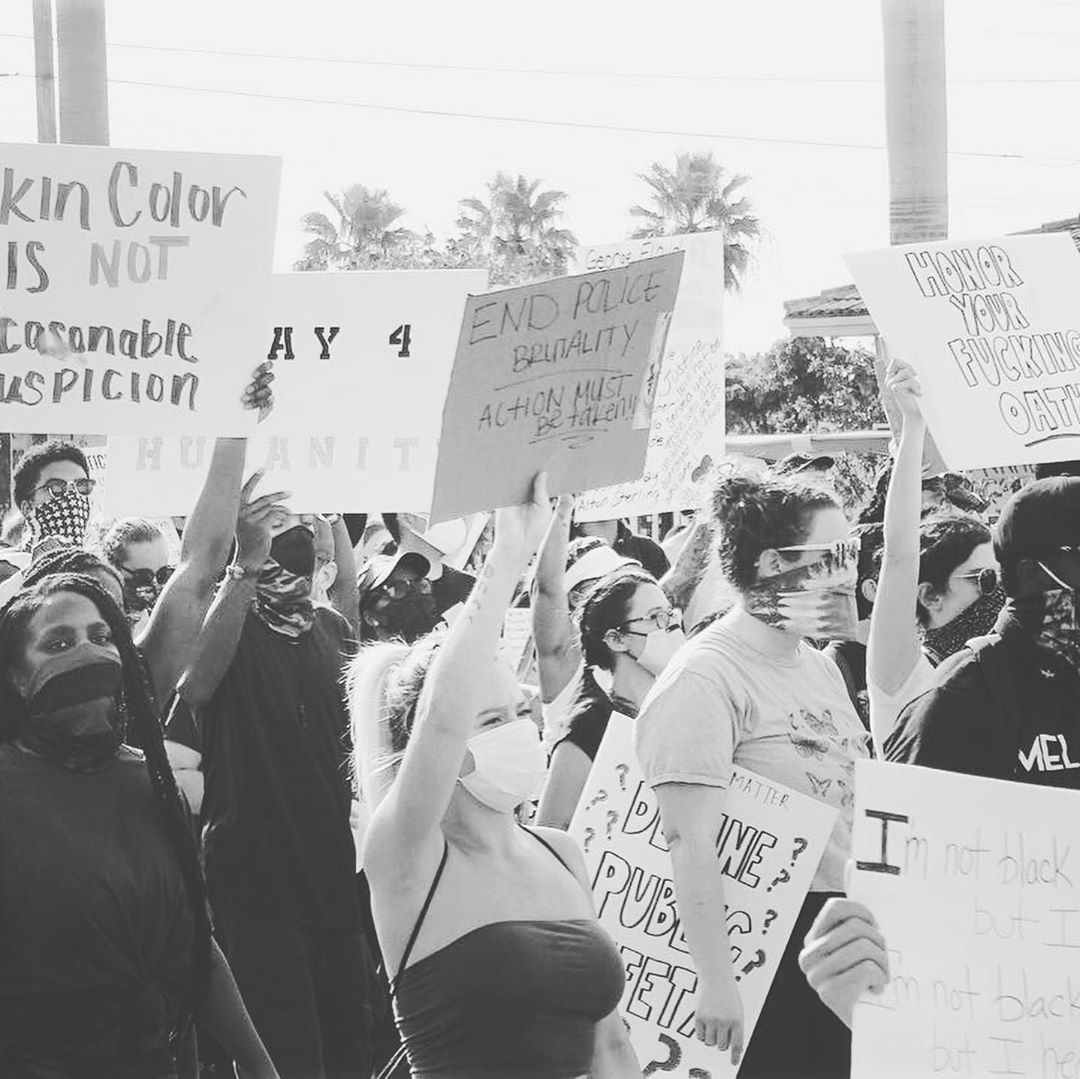 kin Color
IS NOT
easonable
uspicion
AY 4
HUMANIT
END POLICE
BRUTALITY
ACTION MUST
Be taken!!
George Floyd
Justine
Alton Sterling
HONOR
YOUR
FUCKING
OATH
MATTER
PUBLIC
MEL
I'm not black
but I
I'm not black
but I he